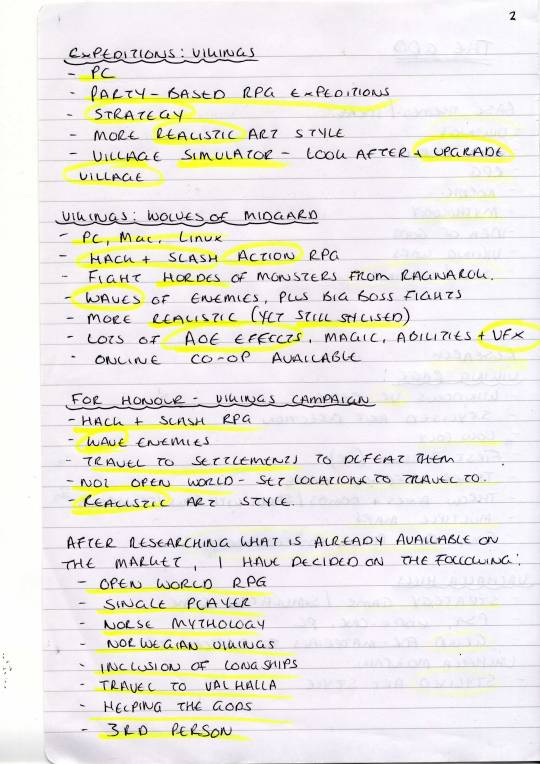 2
EXPEDITIONS: VIKINGS
- PC
- PARTY-BASED RPG EXPEDITIONS
- STRATEGY
- MORE REALISTIC ART STYLE
- VILLAGE SIMULATOR - LOOK AFTER + UPGRADE
VILLAGE
VIKINGS: WOLVES OF MIDGARD
- PC, MAC, LINUX
- HACK + SLASH ACTION RPG
- FIGHT HORDES OF MONSTERS FROM RAGNAROK.
- WAVES OF ENEMIES, PLUS BIG BOSS FIGHTS
- MORE REALISTIC (YET STILL STYLISED)
- LOTS OF AOE EFFECTS, MAGIC, ABILITIES + VFX
- ONLINE CO-OP AVAILABLE
FOR HONOUR - VIKINGS CAMPAIGN
- HACK + SLASH RPG
- WAVE ENEMIES
- TRAVEL TO SETTLEMENTS TO DEFEAT THEM
- NOT OPEN WORLD - SET LOCATIONS TO TRAVEL TO.
- REALISTIC ART STYLE.
AFTER RESEARCHING WHAT IS ALREADY AVAILABLE ON
THE MARKET, I HAVE DECIDED ON THE FOLLOWING:
- OPEN WORLD RPG
- SINGLE PLAYER
- NORSE MYTHOLOGY
- NORWEGIAN VIKINGS
- INCLUSION OF LONGSHIPS
- TRAVEL TO VALHALLA
- HELPING THE GODS
- 3RD PERSON